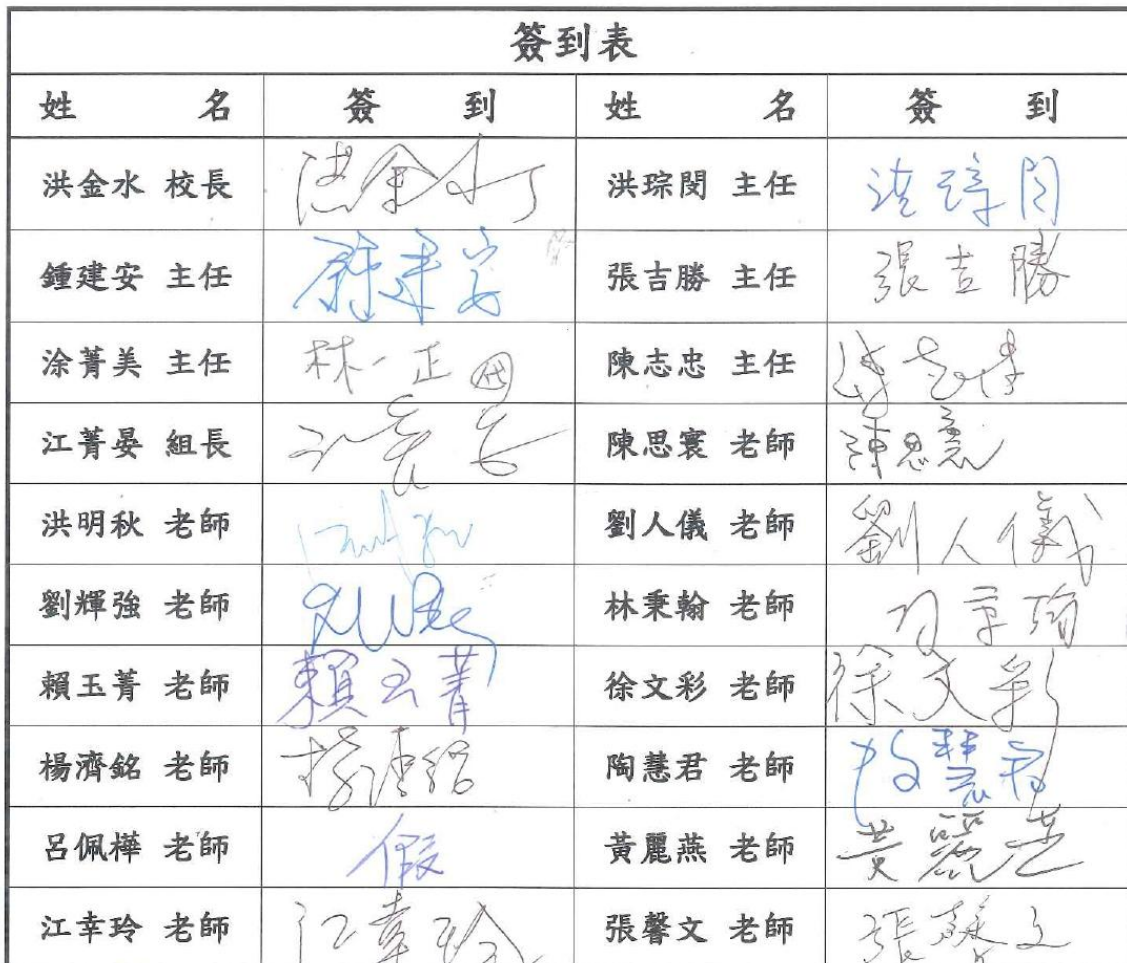 簽到表
姓名 簽到 姓名 簽到
洪金水 校長 洪金水 洪琮閔 主任 洪琮閔
鍾建安 主任 鍾建安 張吉勝 主任 張吉勝
涂菁美 主任 林一正 代 陳志忠 主任
江菁晏 組長 陳思寰 老師 陳思寰
洪明秋 老師 劉人儀 老師 劉人儀
劉輝強 老師 林秉翰 老師
賴玉菁 老師 賴玉菁 徐文彩 老師 徐文彩
楊濟銘 老師 楊濟銘 陶慧君 老師 陶慧君
呂佩樺 老師 假 黃麗燕 老師 黃麗燕
江幸玲 老師 江幸玲 張馨文 老師 張馨文